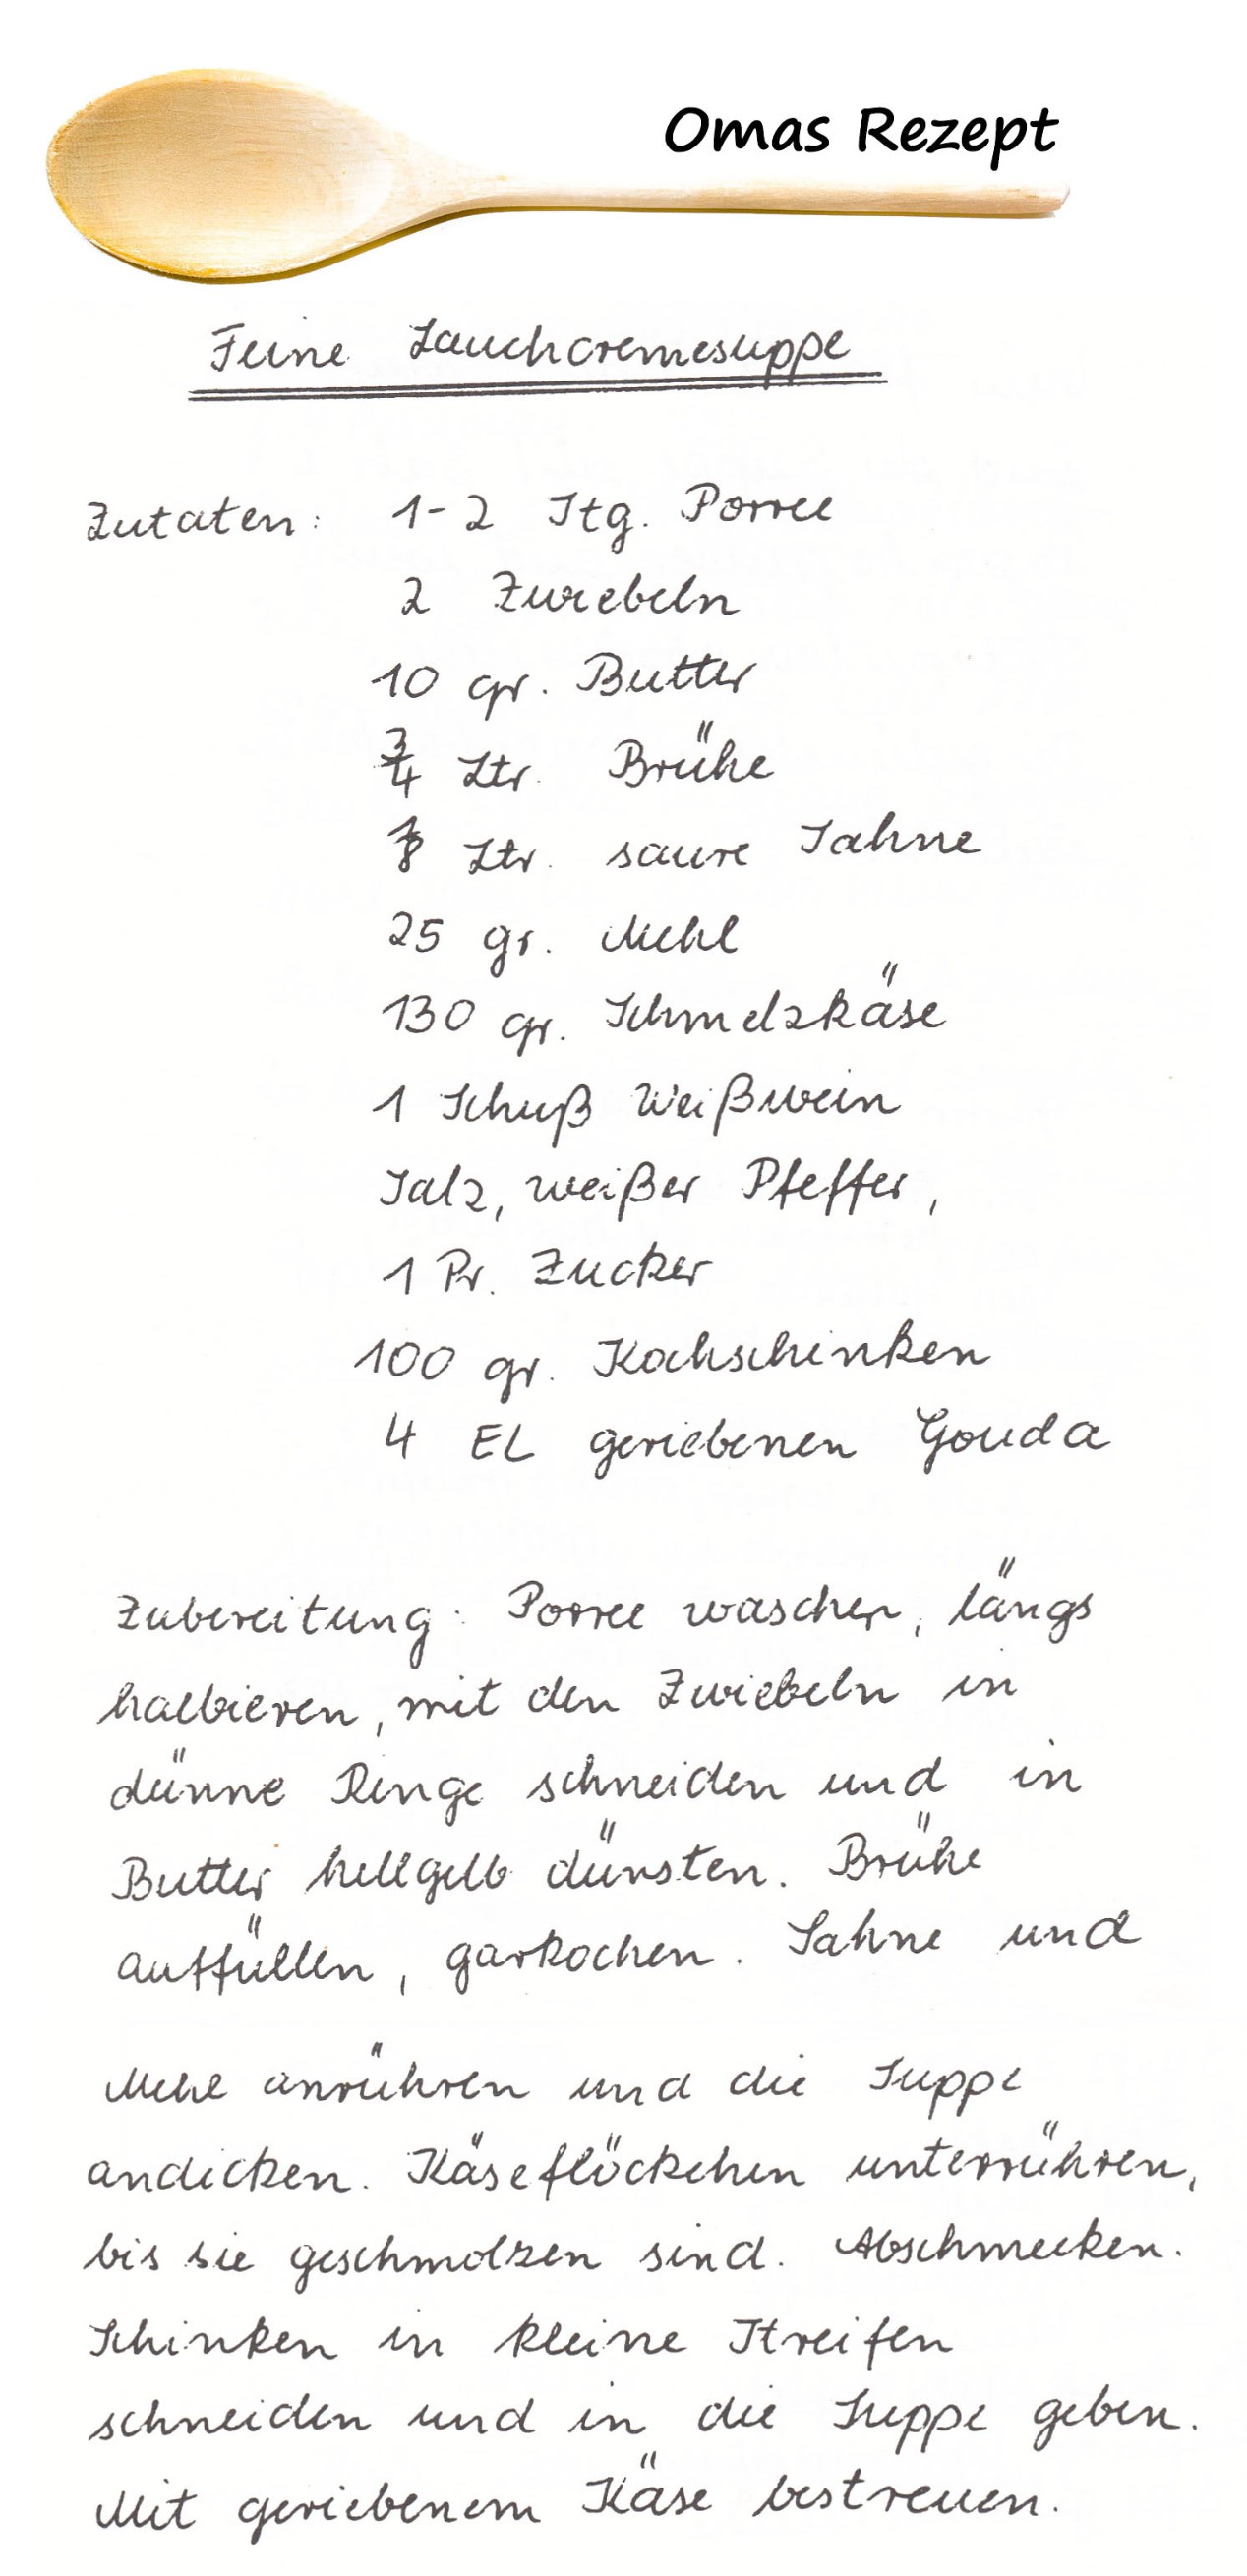 Omas Rezept
Feine Lauchcremesuppe
Zutaten: 1-2 Stg. Porree
2 Zwiebeln
10 gr. Butter
3/4 Ltr. Brühe
1/8 Ltr. saure Sahne
25 gr. Mehl
130 gr. Schmelzkäse
1 Schuß Weißwein
Salz, weißer Pfeffer,
1 Pr. Zucker
100 gr. Kochschinken
4 EL geriebenen Gouda
Zubereitung: Porree waschen, längs
halbieren, mit den Zwiebeln in
dünne Ringe schneiden und in
Butter hellgelb dünsten. Brühe
auffüllen, garkochen. Sahne und
Mehl anrühren und die Suppe
andicken. Käseflöckchen unterrühren,
bis sie geschmolzen sind. Abschmecken.
Schinken in kleine Streifen
schneiden und in die Suppe geben.
Mit geriebenem Käse bestreuen.